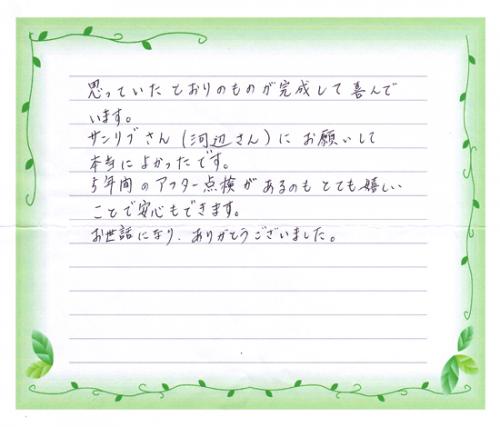 思っていたとおりのものが完成して喜んで
います。
サンリブさん(河辺さん)にお願いして
本当によかったです。
5年間のアフター点検があるのもとても嬉しい
ことで安心もできます。
お世話になり、ありがとうございました。